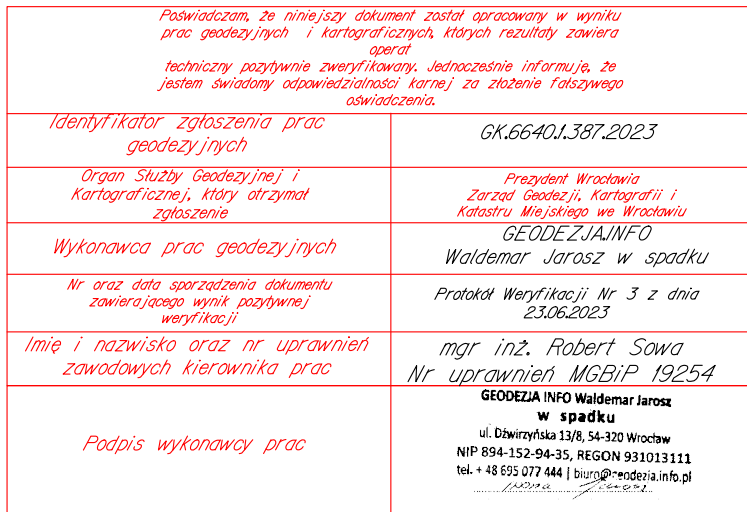 Poświadczam, że niniejszy dokument został opracowany w wyniku
prac geodezyjnych i kartograficznych, których rezultaty zawiera
operat
techniczny pozytywnie zweryfikowany. Jednocześnie informuję, że
jestem świadomy odpowiedzialności karnej za złożenie fałszywego
oświadczenia.
Identyfikator zgłoszenia prac
geodezyjnych
GK.6640.1.387.2023
Organ Służby Geodezyjnej i
Kartograficznej, który otrzymał
zgłoszenie
Prezydent Wrocławia
Zarząd Geodezji, Kartografii i
Katastru Miejskiego we Wrocławiu
Wykonawca prac geodezyjnych
GEODEZJA.INFO
Waldemar Jarosz w spadku
Nr oraz data sporządzenia dokumentu
zawierającego wynik pozytywnej
weryfikacji
Protokół Weryfikacji Nr 3 z dnia
23.06.2023
Imię i nazwisko oraz nr uprawnień
zawodowych kierownika prac
mgr inż. Robert Sowa
Nr uprawnień MGBiP 19254
Podpis wykonawcy prac
GEODEZJA INFO Waldemar Jarosz
w spadku
ul. Dźwirzyńska 13/8, 54-320 Wrocław
NIP 894-152-94-35, REGON 931013111
tel. + 48 695 077 444 | biuro@geodezja.info.pl